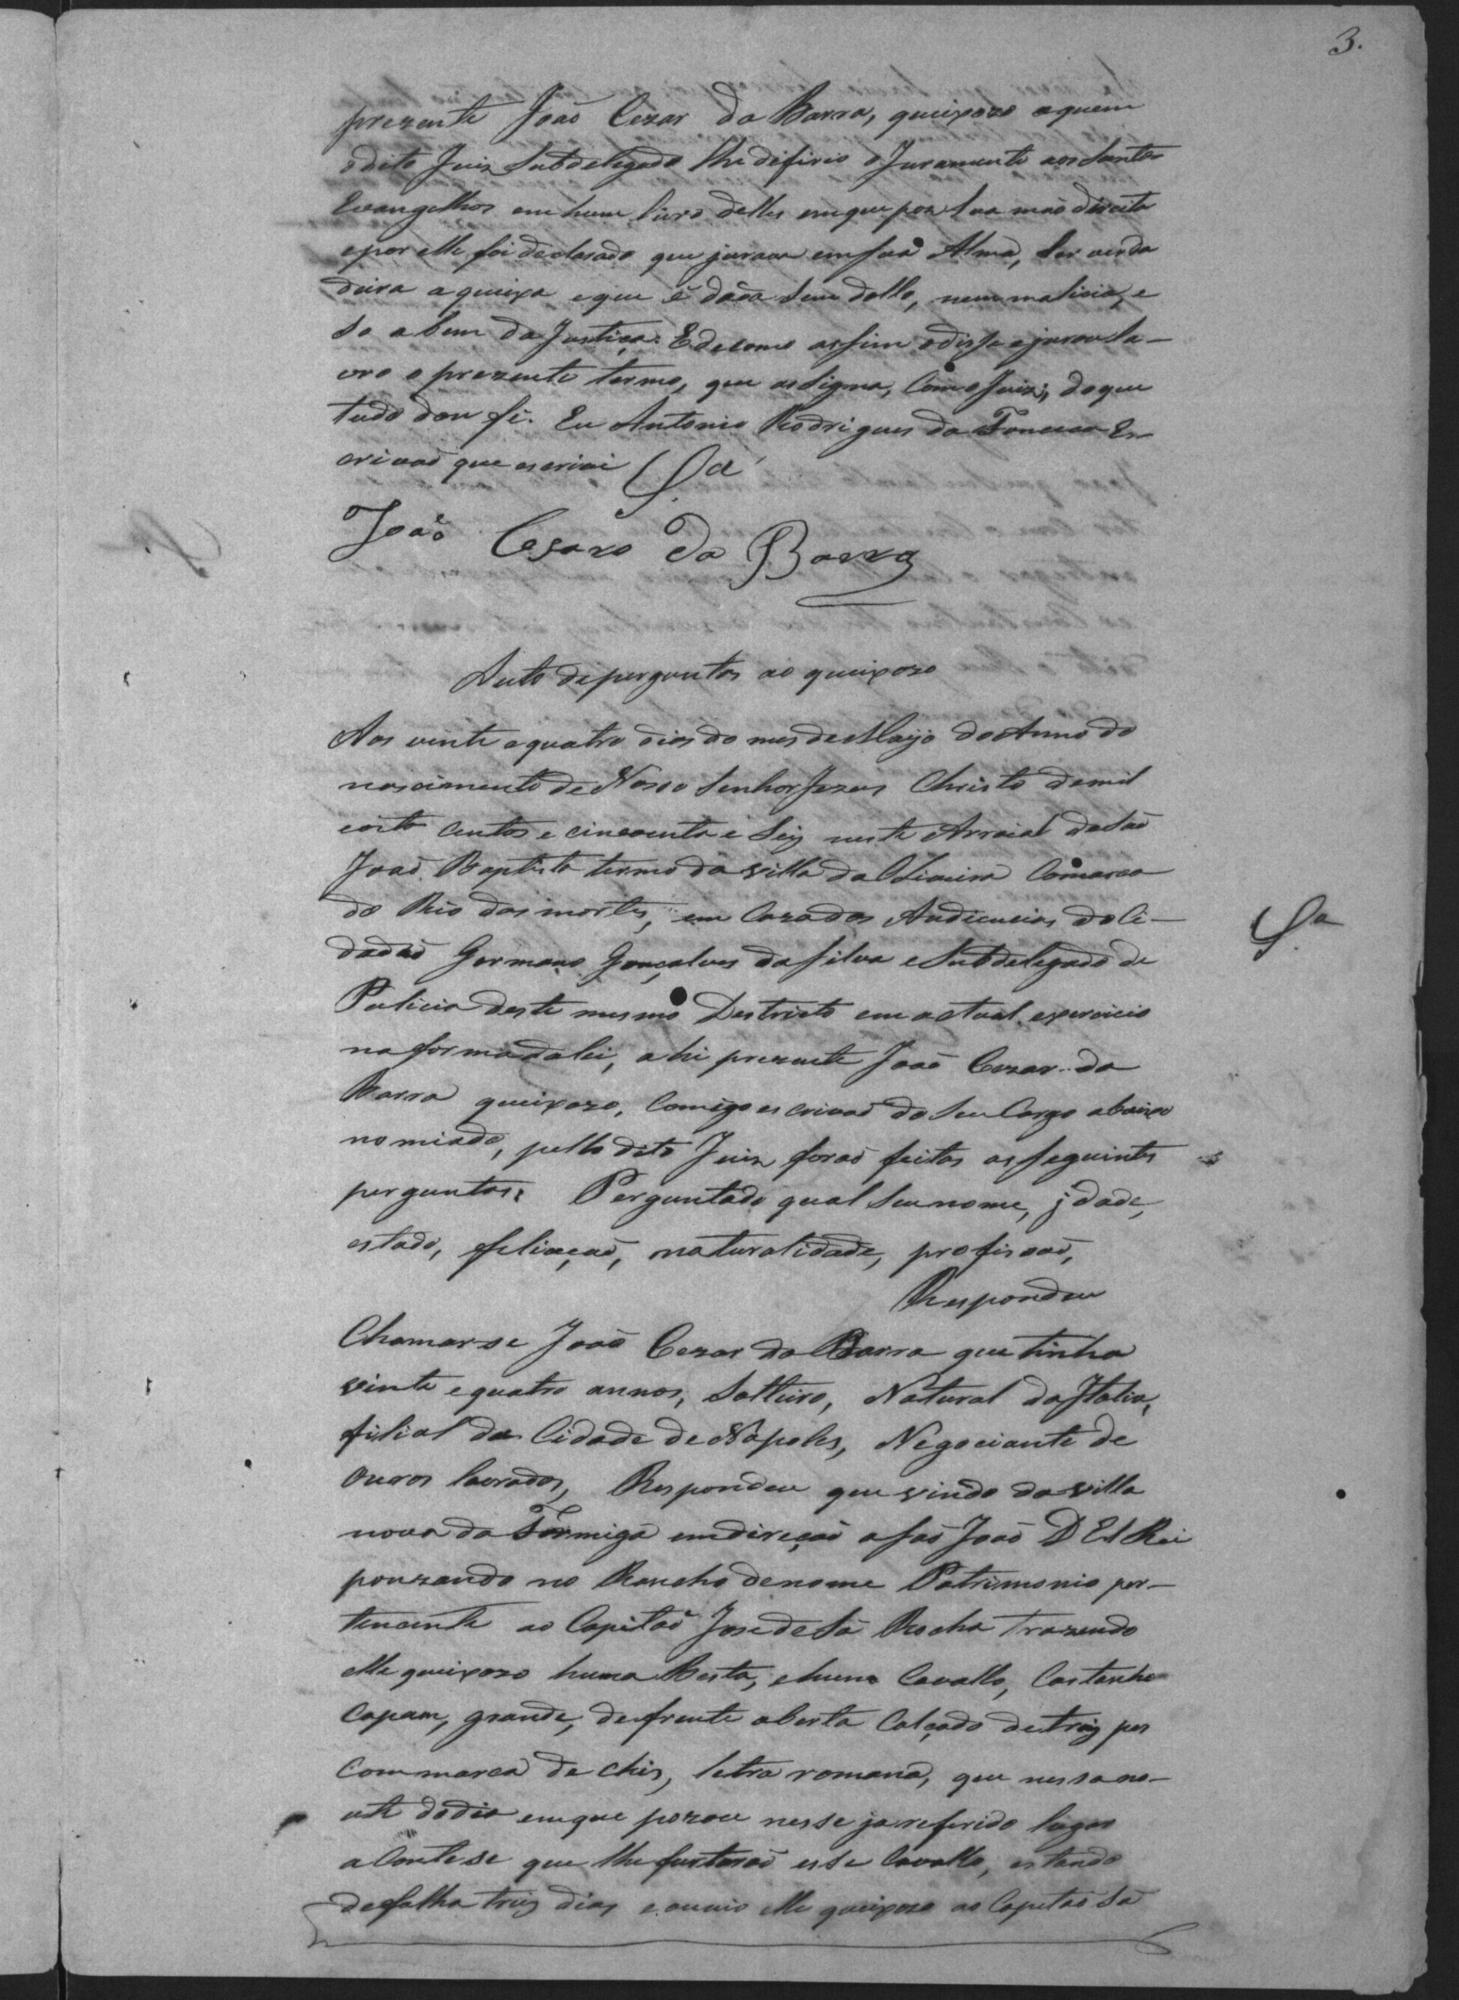 3.
prezente João Cezar da Barra, queixozo aquem
odito Juiz Subdelegado lhe difirio o Juramento aos Santos
Evangelhos em hum livro delles em que poz sua mão direita
e por elle foi declarado que jurava em sua Alma, ser verda
deira a queixa e que é dada sem dollo, nem malicia, e
so a bem da Justiça. E de como assim o disse e jurou la-
vro o prezente termo, que assigna, com o Juiz, do que
tudo dou fé. Eu Antonio Rodrigues da Fonceca Es-
crivaõ que escrivi Sá
João Cesaro da Barra
Auto de perguntas ao queixozo
Aos vinte e quatro dias do mes de Mayo do Anno do
nascimento de Nosso Senhor Jezus Christo de mil
oito centos e cincoenta e Seis neste Arraial de Saõ
Joaõ Baptista termo da villa da Oliveira Comarca
do Rio das mortes, em Caza das Audiencias do Ci-
dadaõ Germano Gonçalves da Silva e Subdelegado de
Sá
Policia deste mesmo Destricto em actual exercicio
na forma da lei, ahi prezente Joaõ Cezar da
Barra queixozo, Comigo escrivaõ do Seu Cargo abaixo
nomiado, pello dito Juiz foraõ feitas as seguintes
perguntas: Perguntado qual seu nome, idade,
estado, feliaçaõ, naturalidade, profissaõ,
Respondeu
Chamar-se Joaõ Cezar da Barra que tinha
vinte e quatro annos, Solteiro, Natural da Italia,
filial da Cidade de Napoles, Negociante de
ouros lavrados, Respondeu que vindo da villa
nova da Formiga em direçaõ a Saõ Joaõ D El Rei
pouzando no Rancho de nome Patrimonio per-
tencente ao Capitaõ Jose de Sá Rocha trazendo
elle queixozo huma Besta, e hum Cavallo, Castanho
Capam, grande, de frente aberta Calçado de tres pes
Com marca de chis, letra romana, que nessa no-
ute do dia em que pozou nesse ja referido lugar
a Contese que lhe furtaraõ esse Cavallo, estando
de falha tres dias e ouvio elle queixozo ao Capitaõ Sá